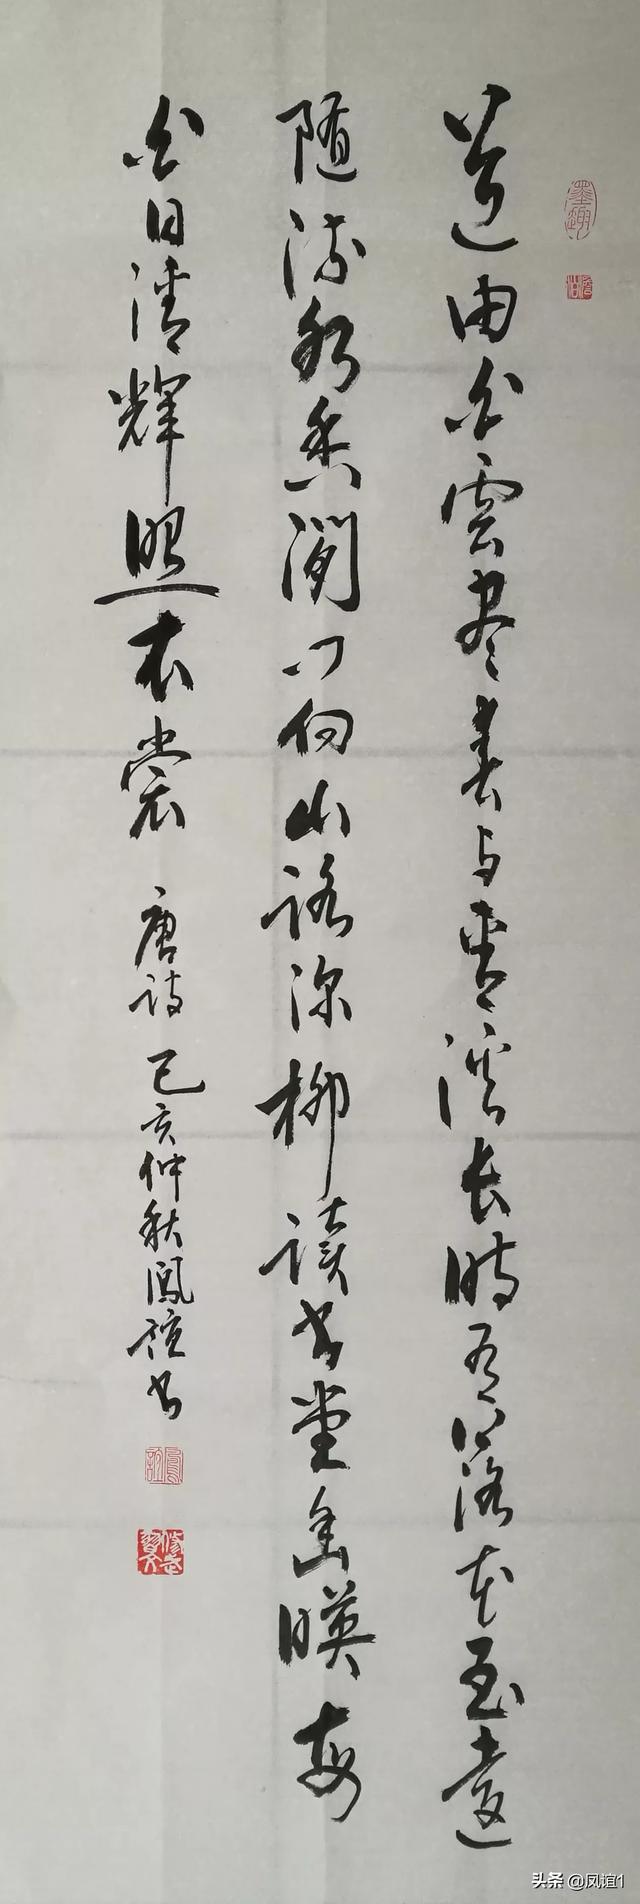 墨趣
道由白雲尽春与青溪长时有落花至遠
随流水香闲门向山路深柳读书堂幽暎每
白日清輝照衣裳 唐诗 己亥仲秋鳳谊书
鳳誼
头条 @凤谊1